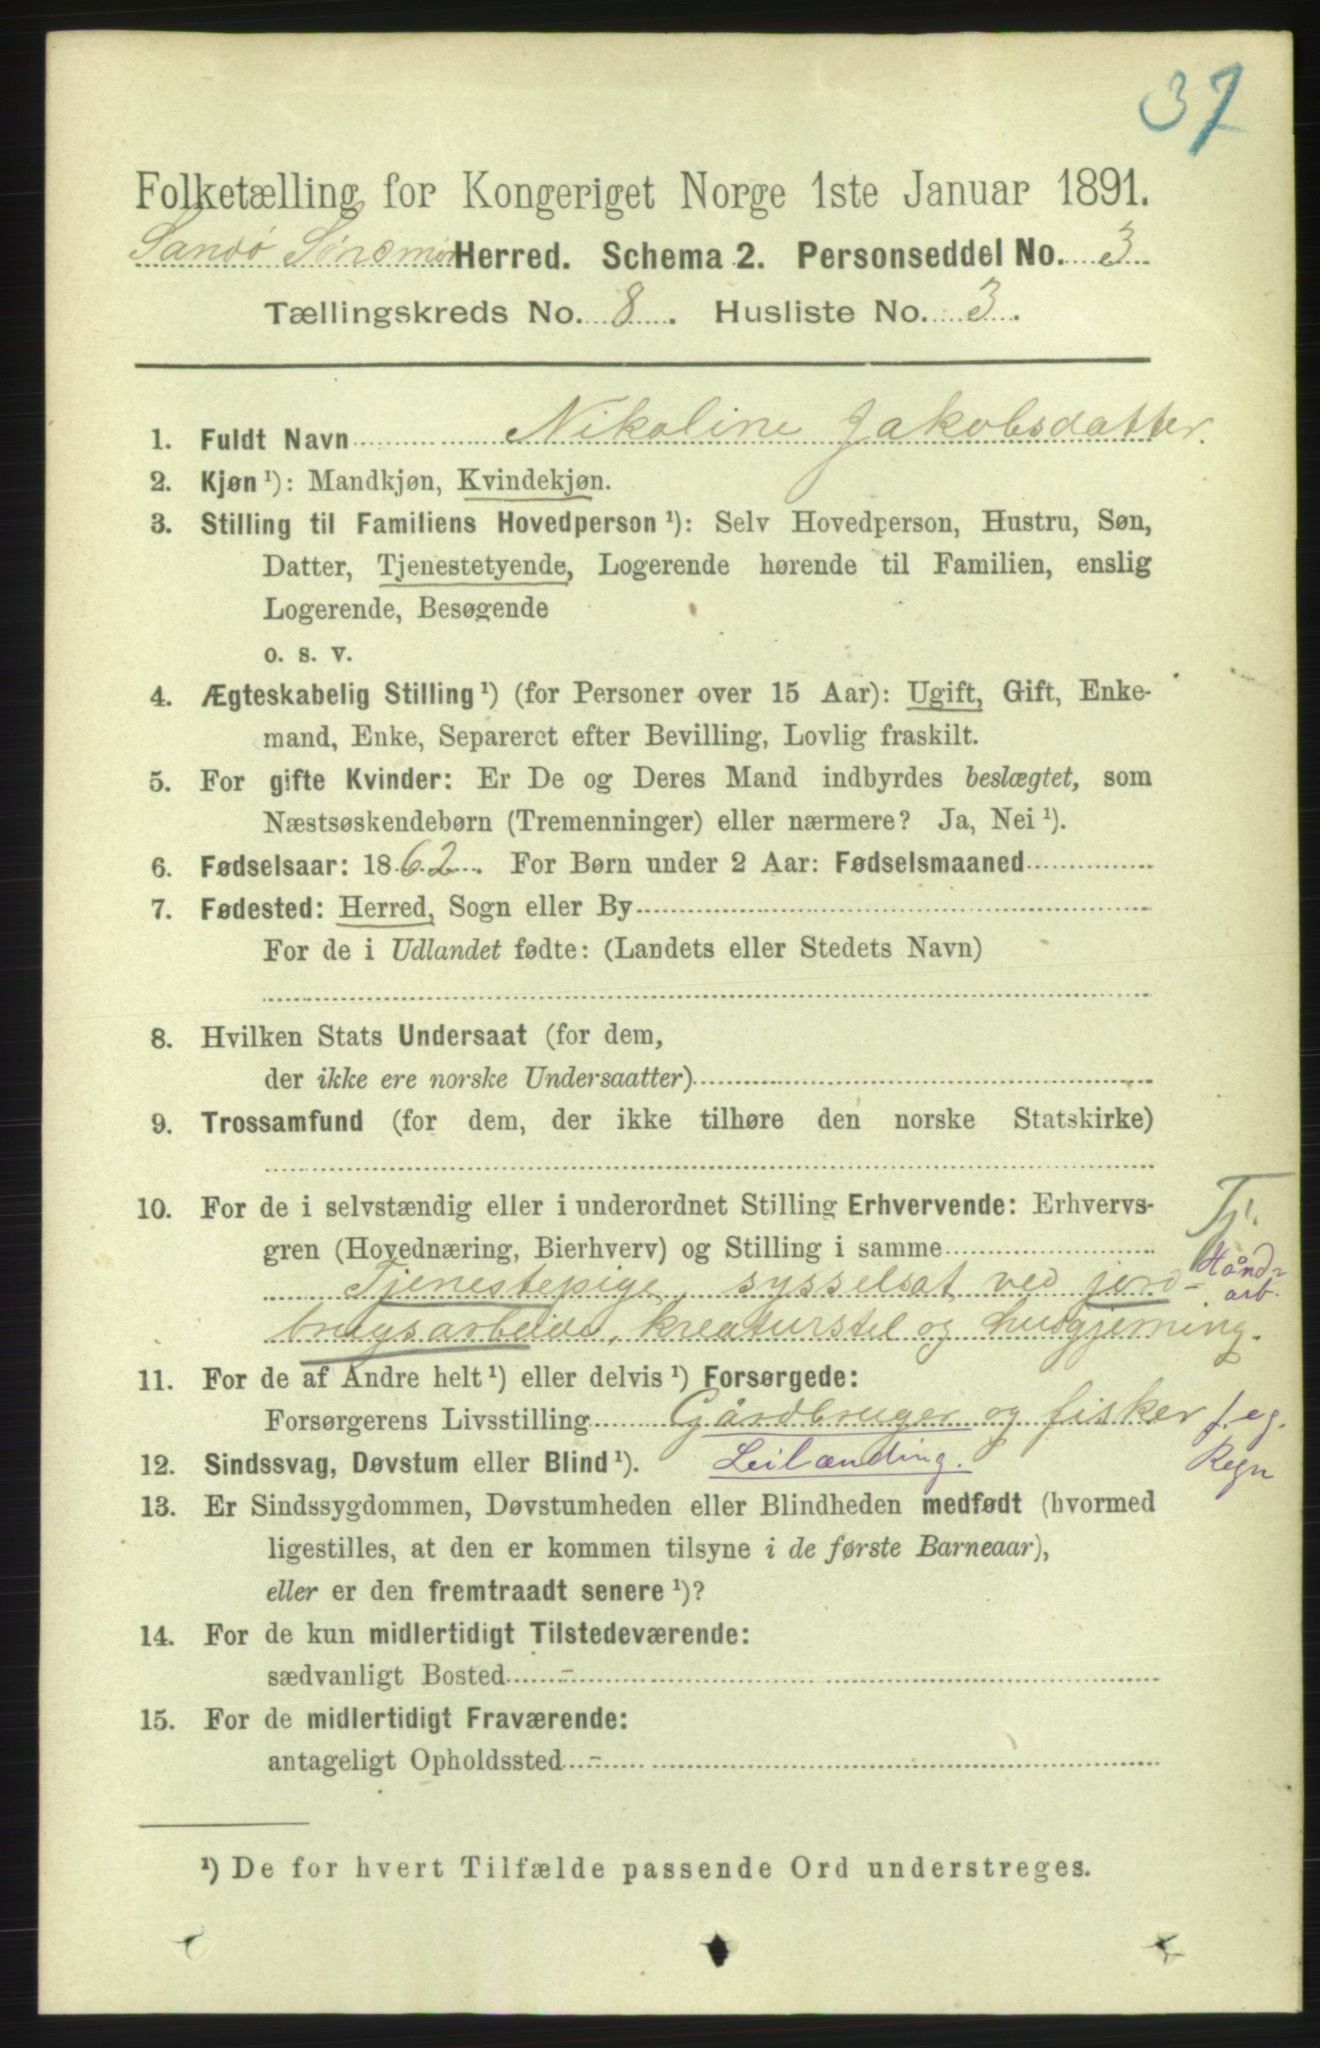 37
Folketælling for Kongeriget Norge 1ste Januar 1891.
Sandö Sönæmör Herred. Schema 2. Personseddel No. 3
Tællingskreds No. 8. Husliste No. 3.
1. Fuldt Navn Nikoline Jakobsdatter.
2. Kjøn ¹): Mandkjøn, Kvindekjøn.
3. Stilling til Familiens Hovedperson ¹): Selv Hovedperson, Hustru, Søn,
Datter, Tjenestetyende, Logerende hørende til Familien, enslig
Logerende, Besøgende
o. s. v.
4. Ægteskabelig Stilling ¹) (for Personer over 15 Aar): Ugift, Gift, Enke-
mand, Enke, Separeret efter Bevilling, Lovlig fraskilt.
5. For gifte Kvinder: Er De og Deres Mand indbyrdes beslægtet, som
Næstsøskendebørn (Tremenninger) eller nærmere? Ja, Nei ¹).
6. Fødselsaar: 1862. For Børn under 2 Aar: Fødselsmaaned
7. Fødested: Herred, Sogn eller By
For de i Udlandet fødte: (Landets eller Stedets Navn)
8. Hvilken Stats Undersaat (for dem,
der ikke ere norske Undersaatter)
9. Trossamfund (for dem, der ikke tilhøre den norske Statskirke)
10. For de i selvstændig eller i underordnet Stilling Erhvervende: Erhvervs-
gren (Hovednæring, Bierhverv) og Stilling i samme
Tj.
Tjenestepige, sysselsat ved jord-
Hånd-
arb.
brugsarbeide, kreaturstel og husgjerning.
11. For de af Andre helt ¹) eller delvis ¹) Forsørgede:
Forsørgerens Livsstilling Gårdbruger og fisker f. eg.
Regn
12. Sindssvag, Døvstum eller Blind ¹). Leilænding.
13. Er Sindssygdommen, Døvstumheden eller Blindheden medfødt (hvormed
ligestilles, at den er kommen tilsyne i de første Barneaar),
eller er den fremtraadt senere ¹)?
14. For de kun midlertidigt Tilstedeværende:
sædvanligt Bosted -
15. For de midlertidigt Fraværende:
antageligt Opholdssted -
¹) De for hvert Tilfælde passende Ord understreges.